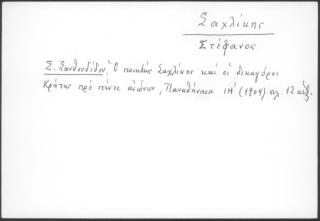 Σαχλίκης
Στέφανος
Σ. Ξανθουδίδου, Ὁ ποιητὴς Σαχλίκης καὶ οἱ δικηγόροι
Κρήτης πρὸ πέντε αἰώνων, Παναθήναια ΙΗ′ (1909) σλ. 12 κἑξ.